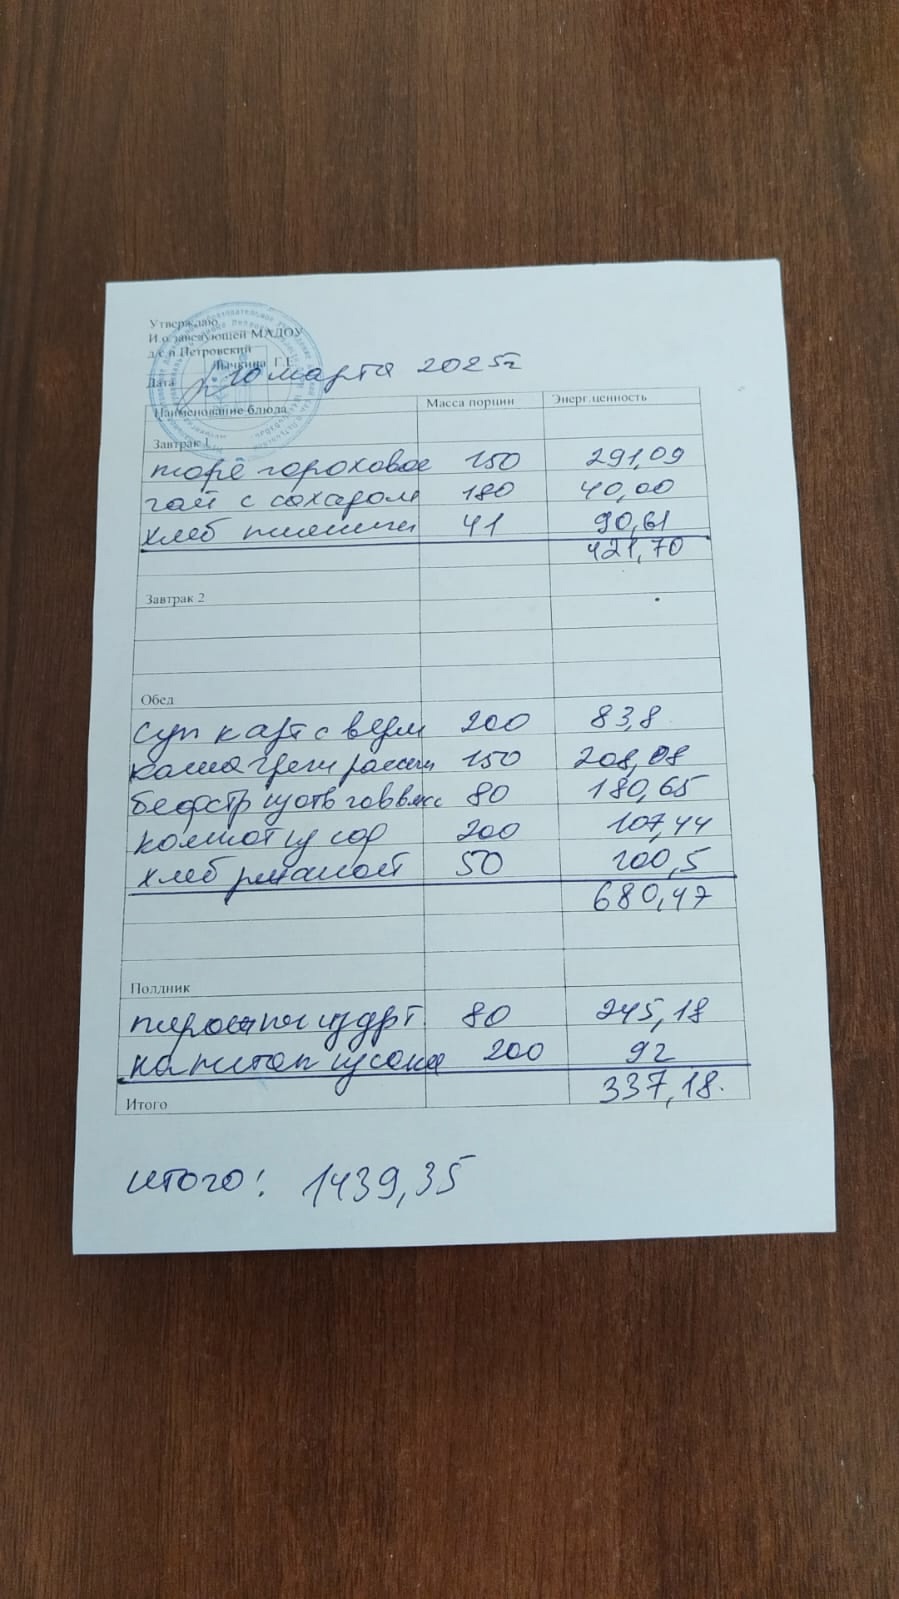 Утверждаю
И.о заведующей МАДОУ
д с п Петровский
Лычкина Г.Г.
Дата 10 марта 2025г
Наименование блюда Масса порции Энерг.ценность
Завтрак 1
пюрё гороховое 150 291,09
чай с сахаром 180 40,00
хлеб пшеничн 41 90,61
421,70
Завтрак 2
Обед
суп карт с верм 200 83,8
каша греч рассып 150 208,08
бефстр из отв гов мяса 80 180,65
компот из сф 200 107,44
хлеб ржаной 50 100,5
680,47
Полдник
пирожки из др т 80 245,18
напиток из сока 200 92
337,18.
Итого
итого: 1439,35